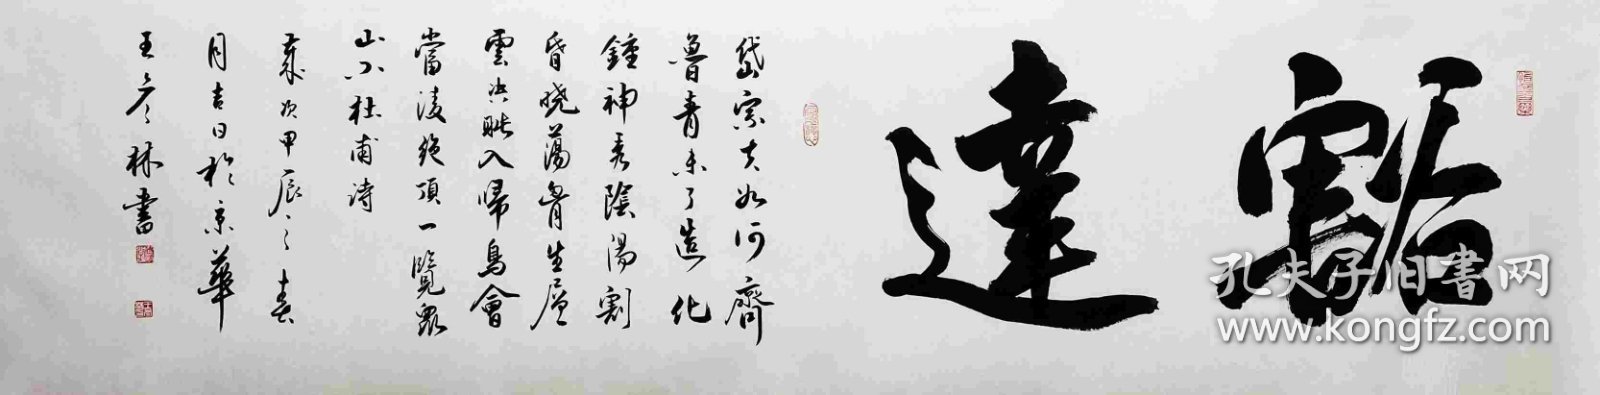 豁達
岱宗夫如何齊
魯青未了造化
鍾神秀陰陽割
昏曉蕩胷生層
雲決眦入歸鳥會
當凌絕頂一覽眾
山小杜甫詩
歲次甲辰之春
月吉日於京華
王彦林書
孔夫子旧书网
www.kongfz.com